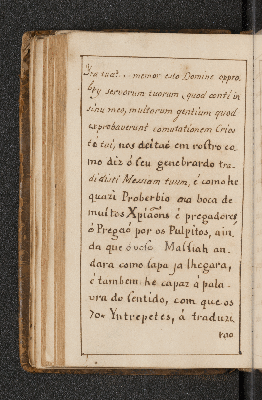 memor esto Domine oppro
bry servorum tuorum, quod conti in
sinu meo, multorum gentium quod
exprobaverunt comutationem Cris
tui, nos deitaõ em rostro co
mo diz o seu genebrardo tra
didisti Messiam tuum, é como he
quazi Proberbio na boca de
muitos Xpiaõns é pregadores
ó Pregaõ por os Pulpitos, ain
da que Massiah an
dara como lapa ja lhegara,
é tambem he capaz á pala
vra do sentido, com que os
70 Yntrepetes, á traduzi
raõ